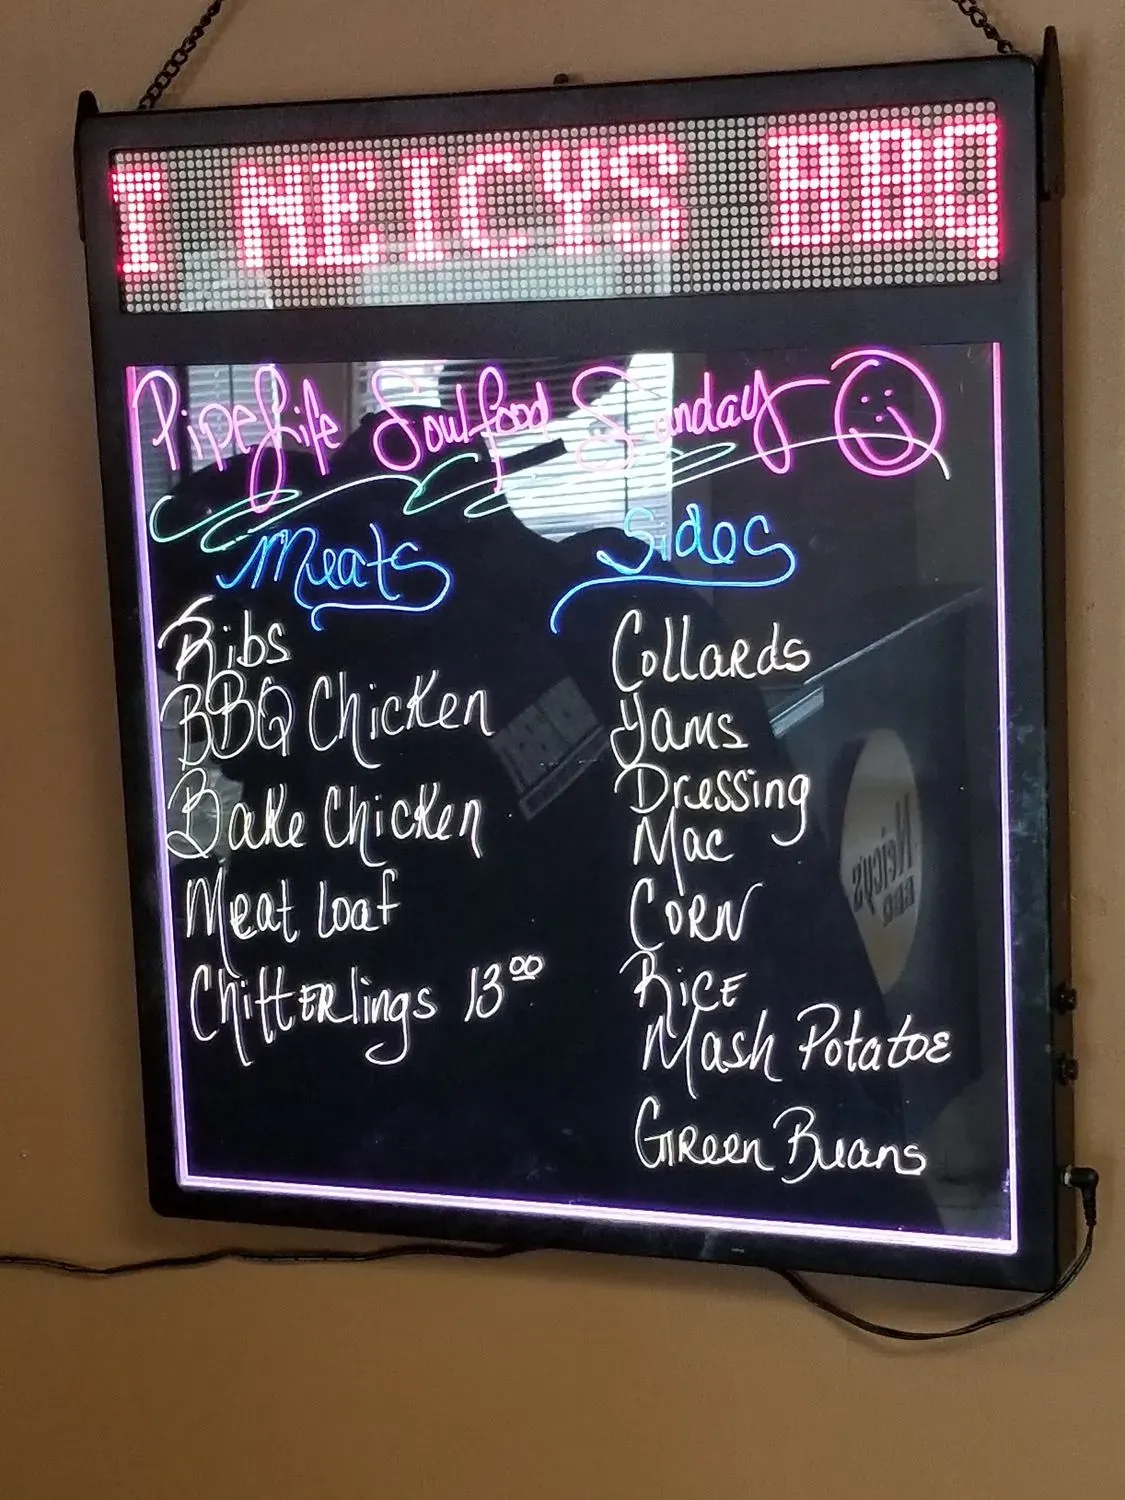 T NEICYS BBQ
PipeLife Soulfood Sunday
Meats
Ribs
BBQ Chicken
Bake Chicken
Meat loaf
Chitterlings 13⁰⁰
Sides
Collards
Yams
Dressing
Mac
Corn
Rice
Mash Potatoe
Green Beans
Neicys
BBQ